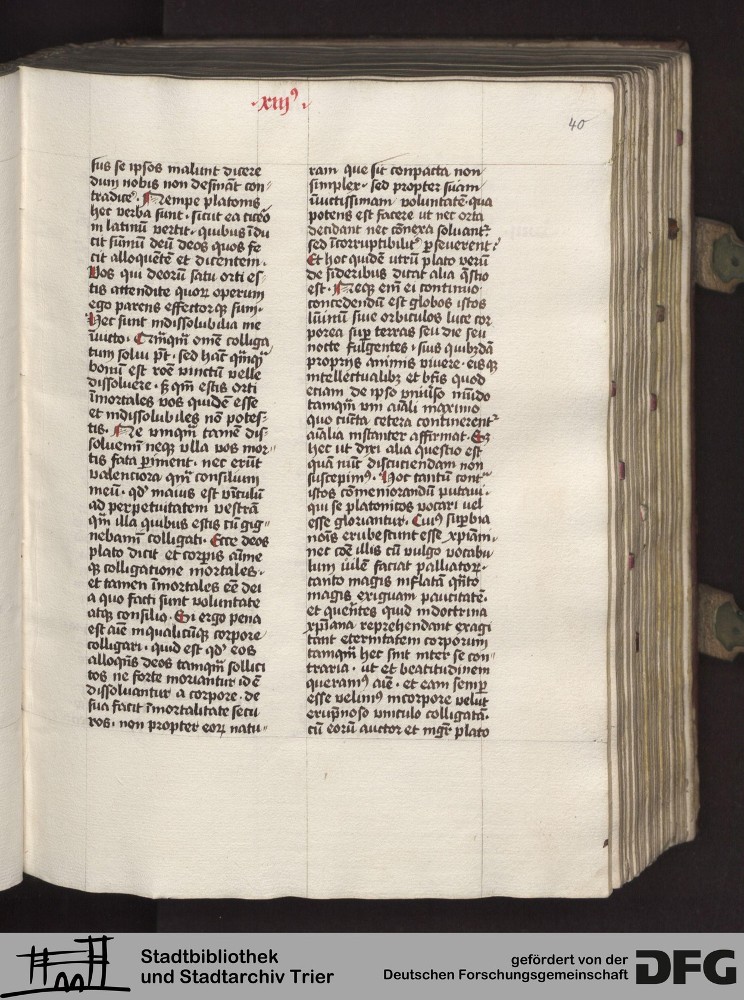 ·xiijꝰ·
40
sus se ipsos malunt dicere
dum nobis non desināt con⸗
tradicē. Nempe platonis
hec verba sunt · sicut ea cicēo
in latinū vertit · quibus īdu
cit sūmū deū deos quos fe
cit alloquētē et dicentem ·
Vos qui deorū satu orti es⸗
tis attendite quoꝝ operum
ego parens effectorqꝫ sum ·
Hec sunt indissolubilia me
īuito ·
tum solui pōt · sed haut
bonū est vinctū velle
dissoluere · estis orti
īmortales vos quidē esse
et indissolubiles nō potes⸗
tis · Ne tamē dis
soluemī neqꝫ vlla vos mor⸗
tis fata ꝑiment · nec erūt
valenciora qm̄ consilium
meū · qd' maius est vīculū
ad perpetuitatem vestrā
qm̄ illa quibus estis cū gig⸗
nebamī colligati · Ecce deos
plato dicit et corꝑis aīme
qꝫ colligatione mortales ·
et tamen īmortales eē dei
a quo facti sunt voluntate
atqꝫ consilio · Si ergo pena
est aīe inqualicūqꝫ corpore
colligari · quid est qd' eos
alloqn̄s deos tamqm̄ sollici
tos ne forte moriantur id ē
dissoluantur a corpore · de
sua facit īmortalitate secu
ros · non propter eoꝝ natu⸗
ram que sit conpacta non
simplex · sed propter suam
īuictissimam voluntatē · qua
potens est facere ut nec orta
decidant nec cōnexa soluant᷑
sed īcorruptibilitᷓ ꝑseuerent ·
Et hoc quidē utrū plato verū
de sideribus dicat alia q̄stio
est · Neqꝫ em̄ ei continuo
concedendū est globos istos
lūinū siue orbiculos luce cor
porea suꝑ terras seu die seu
nocte fulgentes · suis quibꝫdā
proprijs animis viuere · eisqꝫ
intellectualibꝫ et btīs quod
etiam de ipso vniūso mūdo
tamqm̄ vno aīali maximo
quo cūcta cetera continerent᷑
aīalia instanter affirmat · Sꝫ
hec ut dixi alia questio est
quā nūc discutiendam non
suscepimꝰ · Hoc tantū cont᷑
istos cōmemorandū putaui ·
qui se platonicos vocari uel
esse gloriantur · Cuiꝰ suꝑbia
nōis erubescunt esse xp̄iani ·
nec cōe illis cū vulgo vocabu
lum uilē faciat palliatoꝝ ·
tanto magis inflatā qn̄to
magis exiguam paucitatē ·
et querētes quid in doctrina
xp̄iana reprehendant exagi
tant eternitatem corporum
tamqm̄ hec sint inter se con⸗
traria · ut et beatitudinem
queramꝰ aīe · et eam semꝑ
esse velimꝰ in corpore velut
erūp̄noso vinculo colligatā ·
cū eorū auctor et mgr̄ plato
Stadtbibliothek
und Stadtarchiv Trier
gefördert von der
Deutschen Forschungsgemeinschaft
DFG